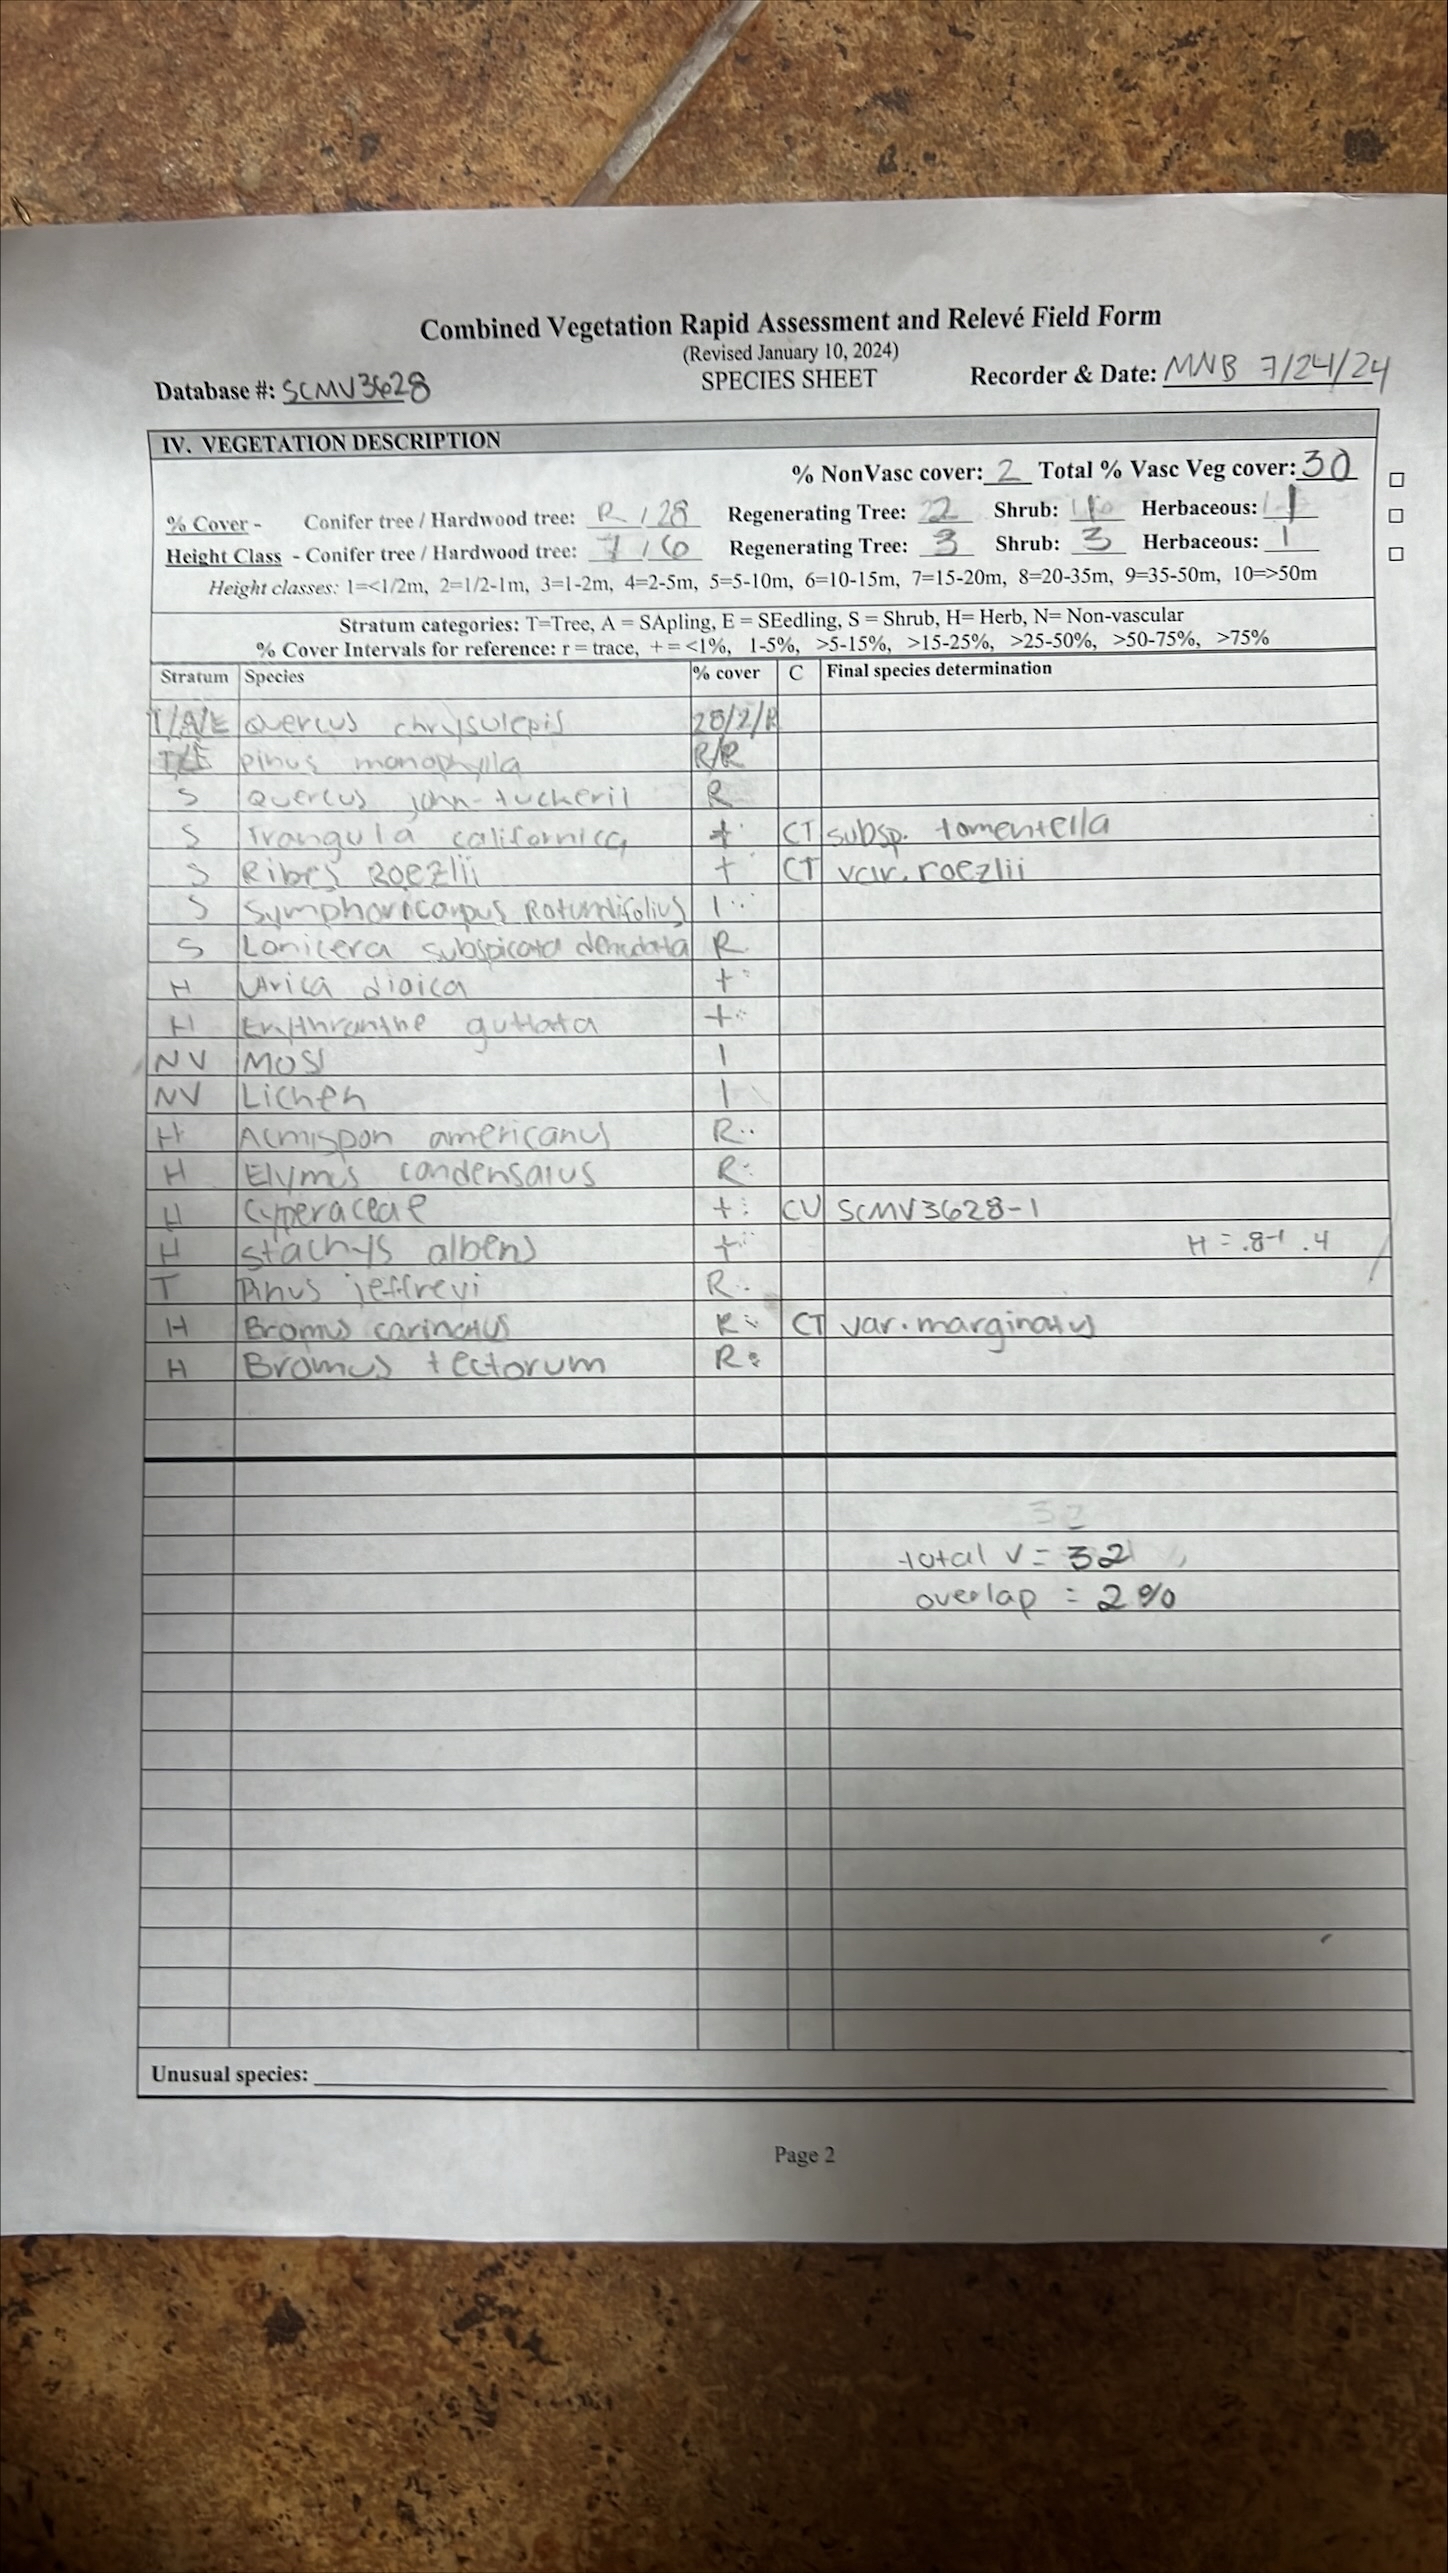 Combined Vegetation Rapid Assessment and Relevé Field Form
(Revised January 10, 2024)
Database #: SCMV3628 SPECIES SHEET Recorder & Date: MNB 7/24/24
IV. VEGETATION DESCRIPTION
% NonVasc cover: 2 Total % Vasc Veg cover: 30
% Cover - Conifer tree / Hardwood tree: R / 28 Regenerating Tree: 2 Shrub: Herbaceous: 1
Height Class - Conifer tree / Hardwood tree: 7 / 6 Regenerating Tree: 3 Shrub: 3 Herbaceous: 1
Height classes: 1=<1/2m, 2=1/2-1m, 3=1-2m, 4=2-5m, 5=5-10m, 6=10-15m, 7=15-20m, 8=20-35m, 9=35-50m, 10=>50m
Stratum categories: T=Tree, A = SApling, E = SEedling, S = Shrub, H= Herb, N= Non-vascular
% Cover Intervals for reference: r = trace, + = <1%, 1-5%, >5-15%, >15-25%, >25-50%, >50-75%, >75%
Stratum Species % cover C Final species determination
T/A/E Quercus chrysolepis 28/2/R
T/E pinus monophylla R/R
S Quercus john-tuckerii R
S Frangula californica + CT subsp. tomentella
S Ribes Roezlii + CT var. roezlii
S Symphoricarpus Rotundifolius 1
S Lonicera subspicata denudata R
H Urica dioica +
H Erythranthe guttata +
NV Moss 1
NV Lichen 1
H Acmispon americanus R
H Elymus condensatus R
H Cyperaceae + CU SCMV3628-1
H stachys albens + H = .8-1 .4
T Pinus jeffreyi R
H Bromus carinatus R CT var. marginatus
H Bromus tectorum R
32
total V = 32
overlap = 2%
Unusual species:
Page 2